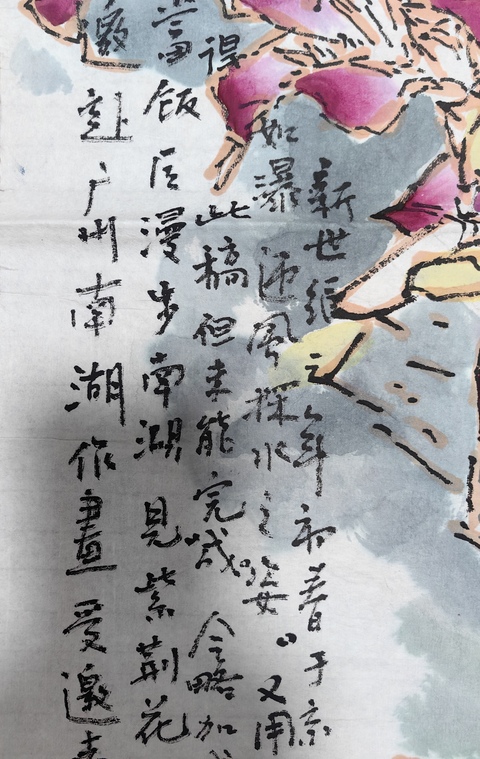 邀赴广州南湖作畫受邀
當饭后漫步南湖見紫荆花
得此稿但未能完成今略加
如瀑迎风探水之姿。又用
新世纪之年初春于京